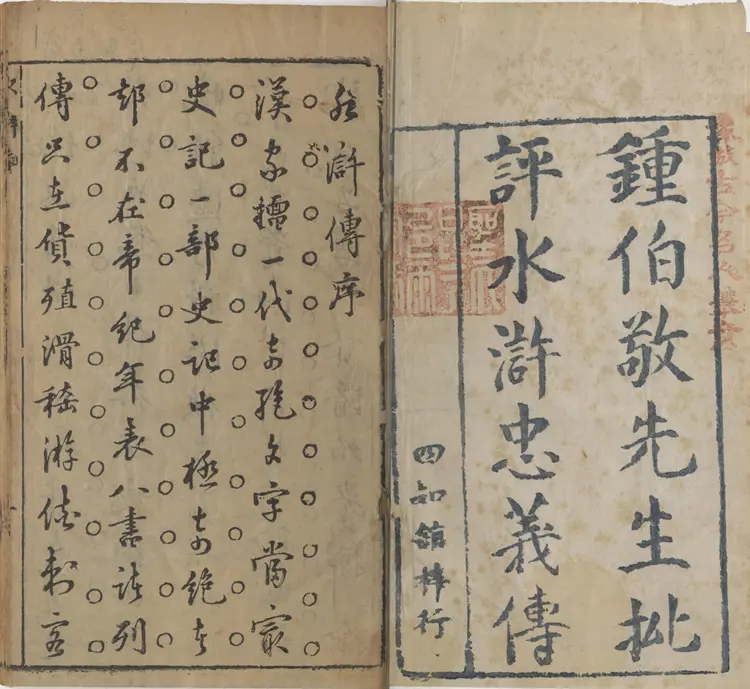 鍾伯敬先生批
評水滸忠義傳
四知館梓行
水滸傳序
漢家擅一代奇絕文字當冣
史記一部史記中極奇絕者
却不在帝紀年表八書諸列
傳只在貨殖滑稽游俠刺客